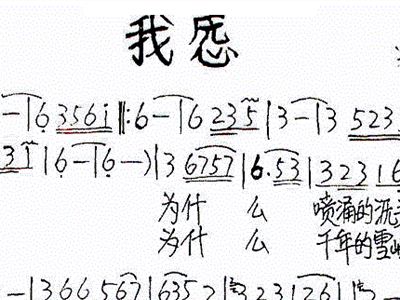 我
- - | 6 3561 ||: 6 - | 6 235 | 3 - | 3 523
31 | 6 - | 6 - ) | 3 6757 | 6. 53 | 32316
为什 么 喷涌的
为什 么 千年的雪
- | 366567 | 6352 | 323126 |